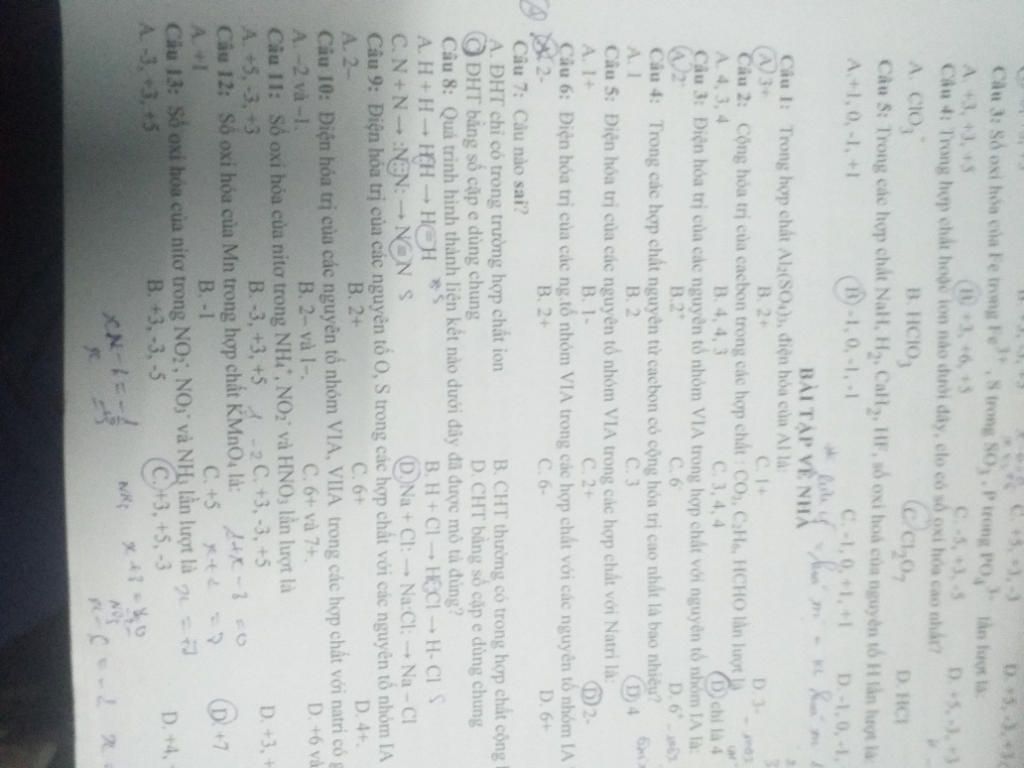 Câu 3: Số oxi hóa của Fe trong Fe3+, S trong SO3, P trong PO4 3- lần lượt là:
A. +3, +3, +5 B. +3, +6, +5 C. -5, +3, +5 D. +5, -3, +3
Câu 4: Trong hợp chất hoặc ion nào dưới đây, clo có số oxi hóa cao nhất?
A. ClO3- B. HClO3 C. Cl2O7 D. HCl
Câu 5: Trong các hợp chất NaH, H2, CaH2, HF, số oxi hoá của nguyên tố H lần lượt là
A. +1, 0, -1, +1 B. -1, 0, -1, -1 C. -1, 0, +1, +1 D. -1, 0, -1,
BÀI TẬP VỀ NHÀ
Câu 1: Trong hợp chất Al2(SO4)3, điện hóa của Al là:
A. 3+ B. 2+ C. 1+ D. 3-
Câu 2: Cộng hóa trị của cacbon trong các hợp chất : CO2, C2H6, HCHO lần lượt là
A. 4, 3, 4 B. 4, 4, 3 C. 3, 4, 4 D. chỉ là 4
Câu 3: Điện hóa trị của các nguyên tố nhóm VIA trong hợp chất với nguyên tố nhóm IA là:
A. 2- B. 2+ C. 6- D. 6+
Câu 4: Trong các hợp chất nguyên tử cacbon có cộng hóa trị cao nhất là bao nhiêu?
A. 1 B. 2 C. 3 D. 4
Câu 5: Điện hóa trị của các nguyên tố nhóm VIA trong các hợp chất với Natri là:
A. 1+ B. 1- C. 2+ D. 2-
Câu 6: Điện hóa trị của các ng.tố nhóm VIA trong các hợp chất với các nguyên tố nhóm IA
A. 2- B. 2+ C. 6- D. 6+
Câu 7: Câu nào sai?
A. ĐHT chỉ có trong trường hợp chất ion B. CHT thường có trong hợp chất cộng
C. ĐHT bằng số cặp e dùng chung D. CHT bằng số cặp e dùng chung
Câu 8: Quá trình hình thành liên kết nào dưới đây đã được mô tả đúng?
A. H + H → H:H → H=H B. H + Cl → H:Cl → H- Cl
C. N + N → :N::N: → N≡N D. Na + Cl: → Na:Cl: → Na – Cl
Câu 9: Điện hóa trị của các nguyên tố O, S trong các hợp chất với các nguyên tố nhóm IA
A. 2– B. 2+ C. 6+ D. 4+.
Câu 10: Điện hóa trị của các nguyên tố nhóm VIA, VIIA trong các hợp chất với natri có
A. –2 và –1. B. 2– và 1–. C. 6+ và 7+. D. +6 và
Câu 11: Số oxi hóa của nitơ trong NH4+, NO2- và HNO3 lần lượt là
A. +5, -3, +3 B. -3, +3, +5 C. +3, -3, +5 D. +3, +
Câu 12: Số oxi hóa của Mn trong hợp chất KMnO4 là:
A. +1 B. -1 C. +5 D. +7
Câu 13: Số oxi hóa của nitơ trong NO2-, NO3- và NH3 lần lượt là
A. -3, +3, +5 B. +3, -3, -5 C. +3, +5, -3 D. +4,